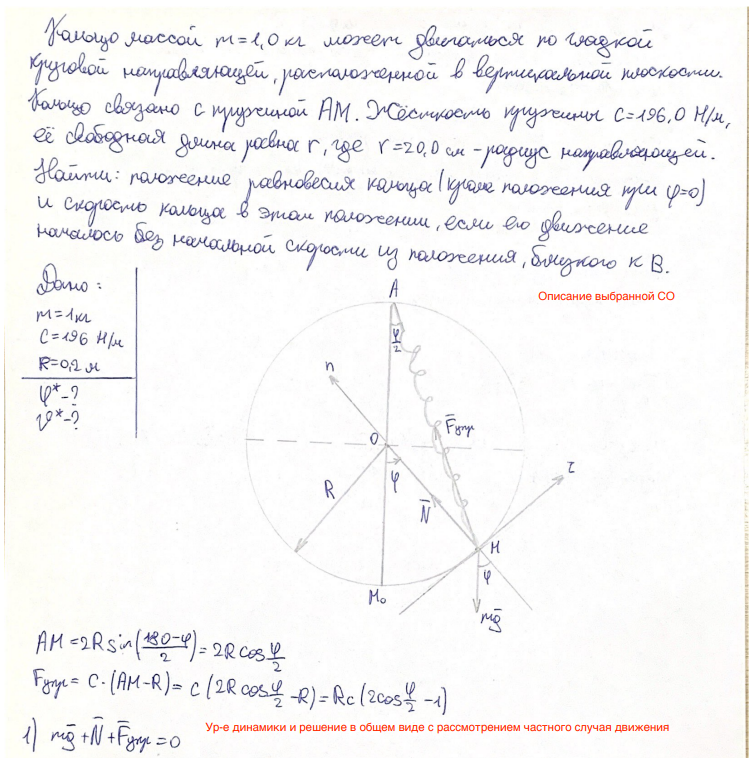 Кольцо массой m=1,0 кг может двигаться по гладкой
круговой направляющей, расположенной в вертикальной плоскости.
Кольцо связано с пружиной AM. Жёсткость пружины C=196,0 Н/м,
её свободная длина равна r, где r=20,0 см - радиус направляющей.
Найти: положение равновесия кольца (кроме положения при φ=0)
и скорость кольца в этом положении, если его движение
началось без начальной скорости из положения, близкого к B.
Дано:
Описание выбранной СО
m=1кг
C=196 Н/м
R=0,2 м
φ*-?
v*-?
A
φ/2
n
F̄упр
O
φ
τ
R
N̄
M
φ
M₀
mḡ
AM = 2R sin((180-φ)/2) = 2R cos φ/2
Fупр = C·(AM-R) = C(2R cos φ/2 -R) = Rc(2cos φ/2 -1)
Ур-е динамики и решение в общем виде с рассмотрением частного случая движения
1) mḡ+N̄+F̄упр=0